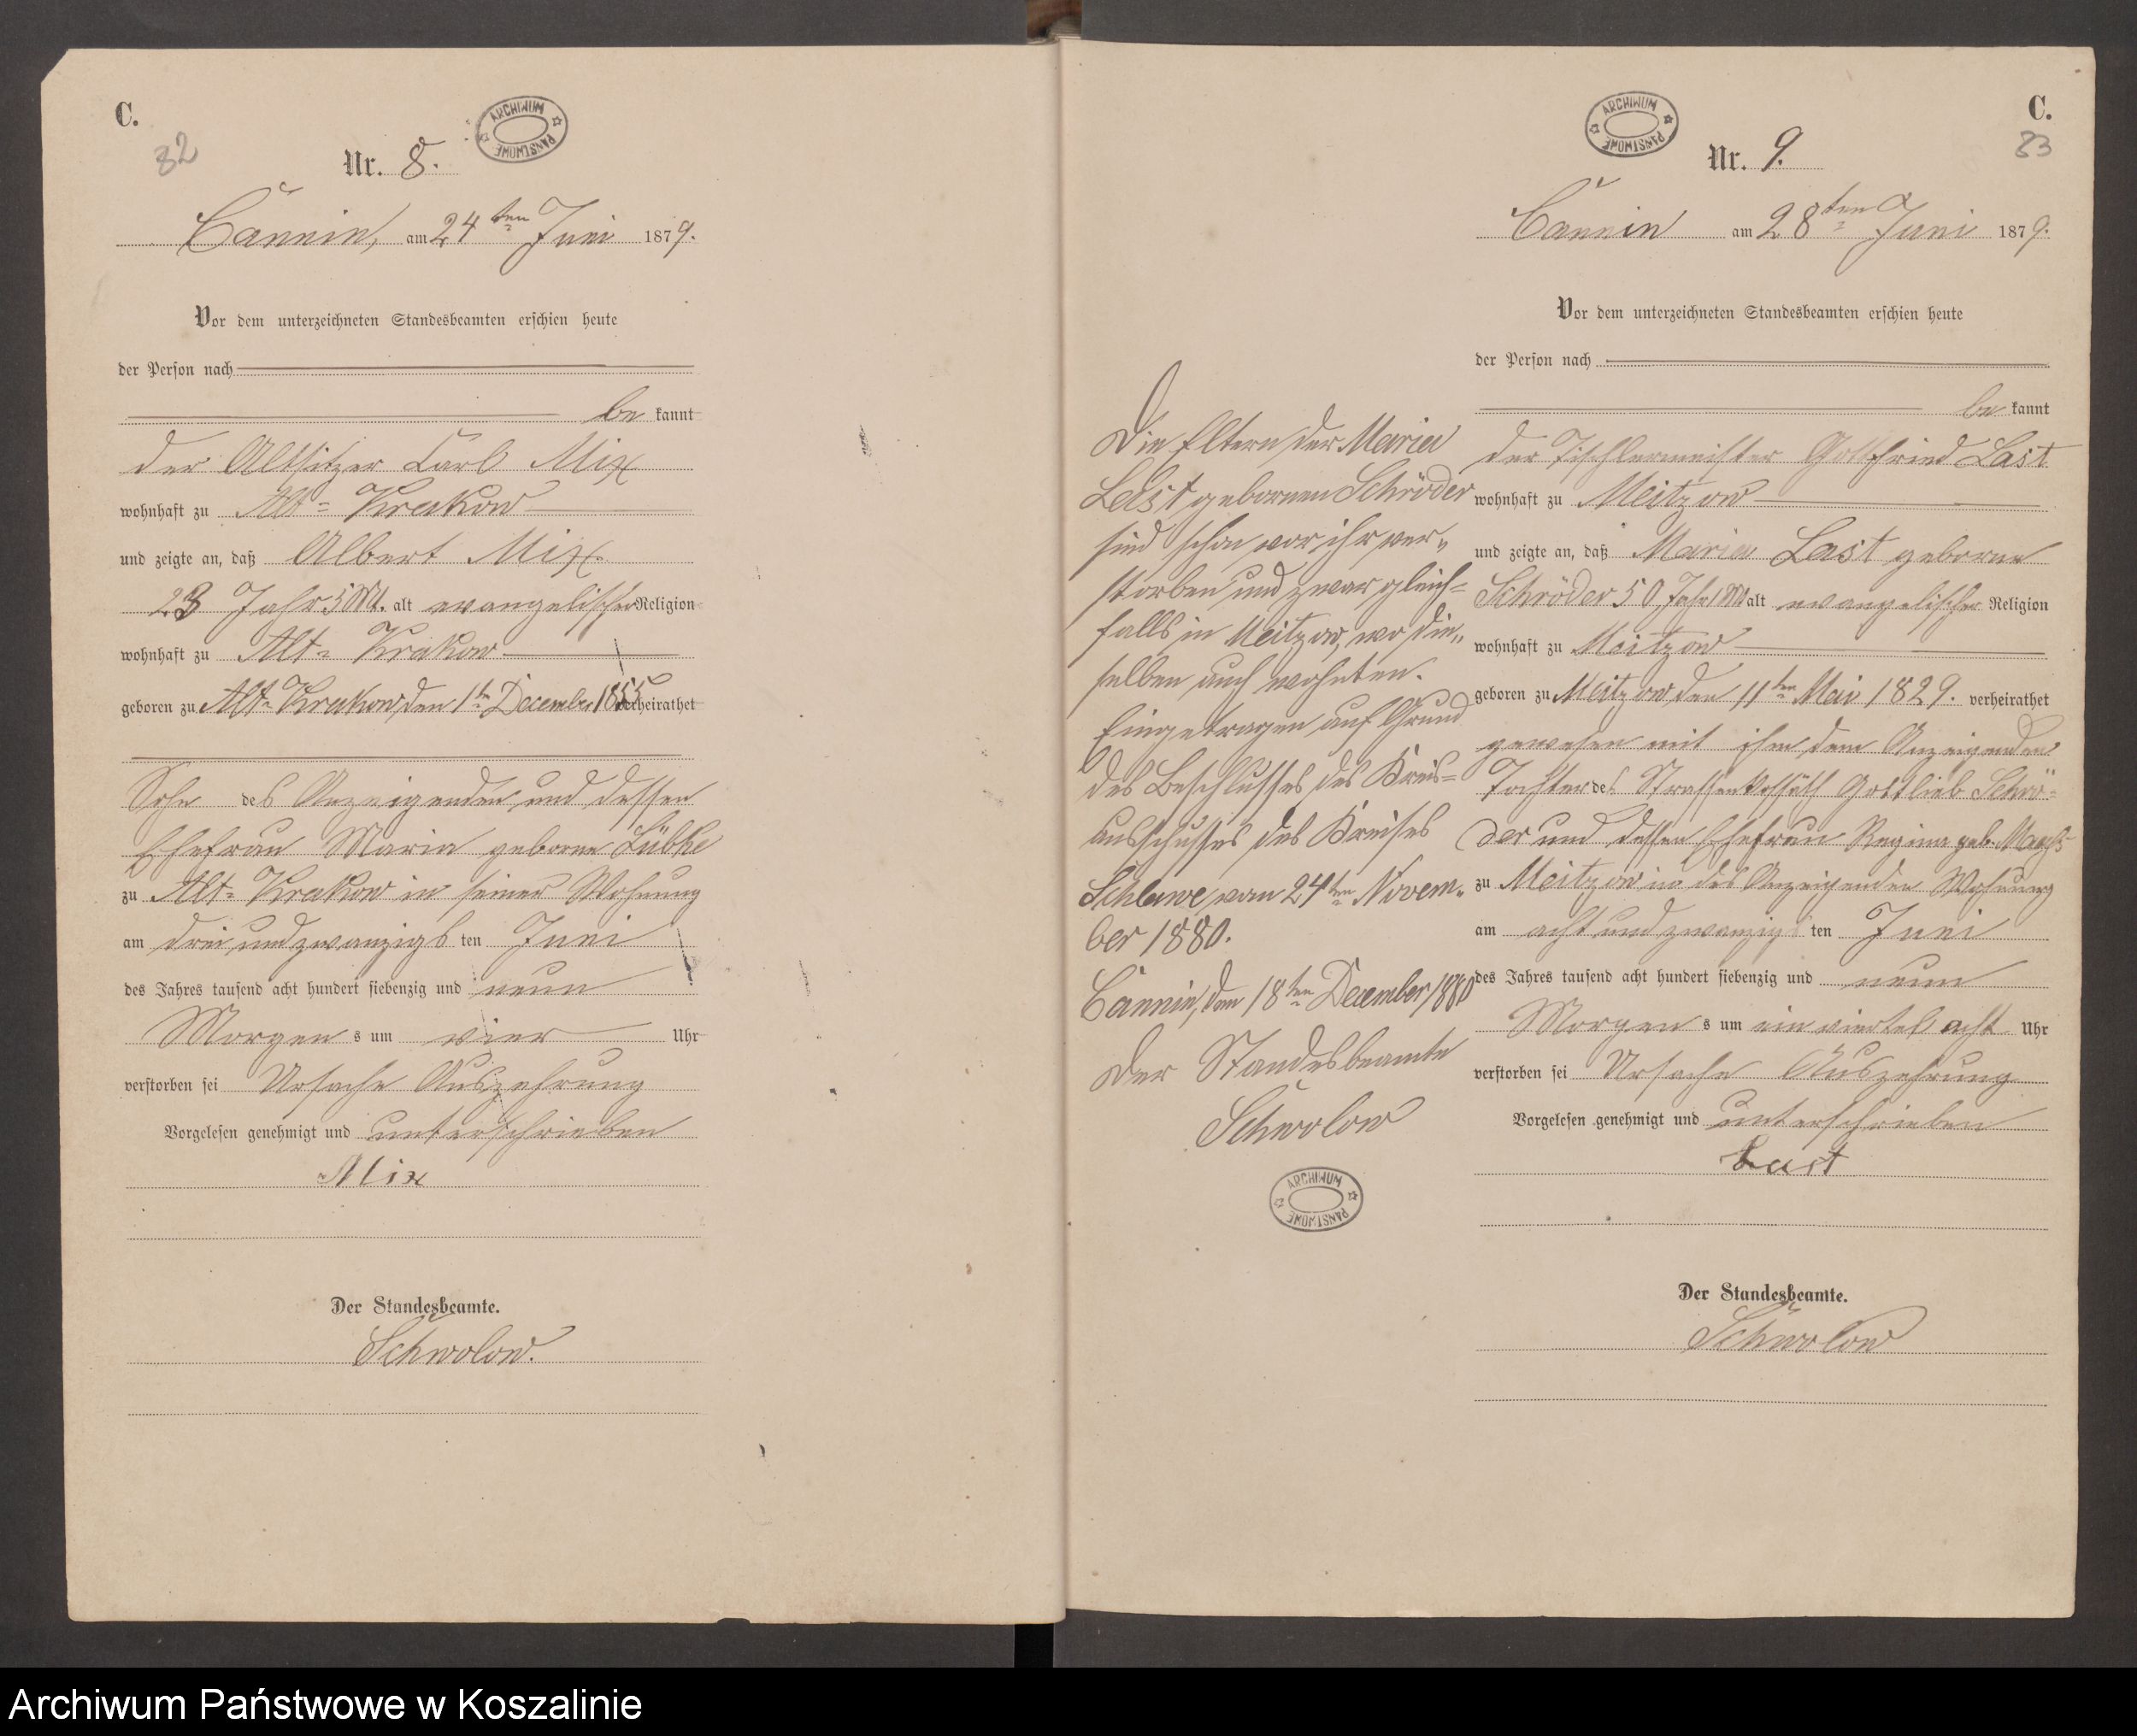 C.
82
ARCHIWUM PAŃSTWOWE
Nr. 8.
Cannin, am 24ten Juni 1879.
Vor dem unterzeichneten Standesbeamten erschien heute
der Person nach
be kannt
der Altsitzer Carl Mix
wohnhaft zu Alt-Krakow
und zeigte an, daß Albert Mix
23 Jahr 5 Mt. alt evangelischer Religion
wohnhaft zu Alt-Krakow
geboren zu Alt-Krakow, den 1ten December 1855 verheirathet
Sohn des Anzeigenden und dessen
Ehefrau Maria geborne Lübke
zu Alt-Krakow in seiner Wohnung
am drei und zwanzigs ten Juni
des Jahres tausend acht hundert siebenzig und neun
Morgen s um vier Uhr
verstorben sei Ursache Auszehrung
Vorgelesen genehmigt und unterschrieben
Mix
Der Standesbeamte.
Schwolow.
C.
83
ARCHIWUM PAŃSTWOWE
Nr. 9.
Cannin am 28ten Juni 1879.
Vor dem unterzeichneten Standesbeamten erschien heute
der Person nach
be kannt
der Tischlermeister Gottfried Last
wohnhaft zu Meitzow
und zeigte an, daß Maria Last geborne
Schröder 50 Jahr 1 Mt alt evangelischer Religion
wohnhaft zu Meitzow
geboren zu Meitzow den 11ten Mai 1829. verheirathet
gewesen mit ihm dem Anzeigenden
Tochter des Gottlieb Schrö-
der und dessen Ehefrau Regina geb.
zu Meitzow in des Anzeigenden Wohnung
am acht und zwanzigs ten Juni
des Jahres tausend acht hundert siebenzig und neun
Morgen s um ein viertel acht Uhr
verstorben sei Ursache Auszehrung
Vorgelesen genehmigt und unterschrieben
Last
Der Standesbeamte.
Schwolow
Die Eltern der Maria
Last gebornen Schröder
sind schon vor ihr ver-
storben und zwar gleich-
falls in Meitzow, wo die-
selben auch wohnten.
Eingetragen auf Grund
des Beschlusses des Kreis-
ausschusses des Kreises
Schlawe vom 24ten Novem-
ber 1880.
Cannin, den 18ten December 1880
Der Standesbeamte
Schwolow
ARCHIWUM PAŃSTWOWE
Archiwum Państwowe w Koszalinie